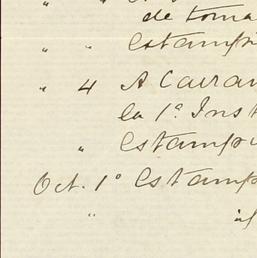 de toma
" " Estampi
" 4 A Cairan
la 1ª Inst
" Estampi
Oct. 1º Estamp
"